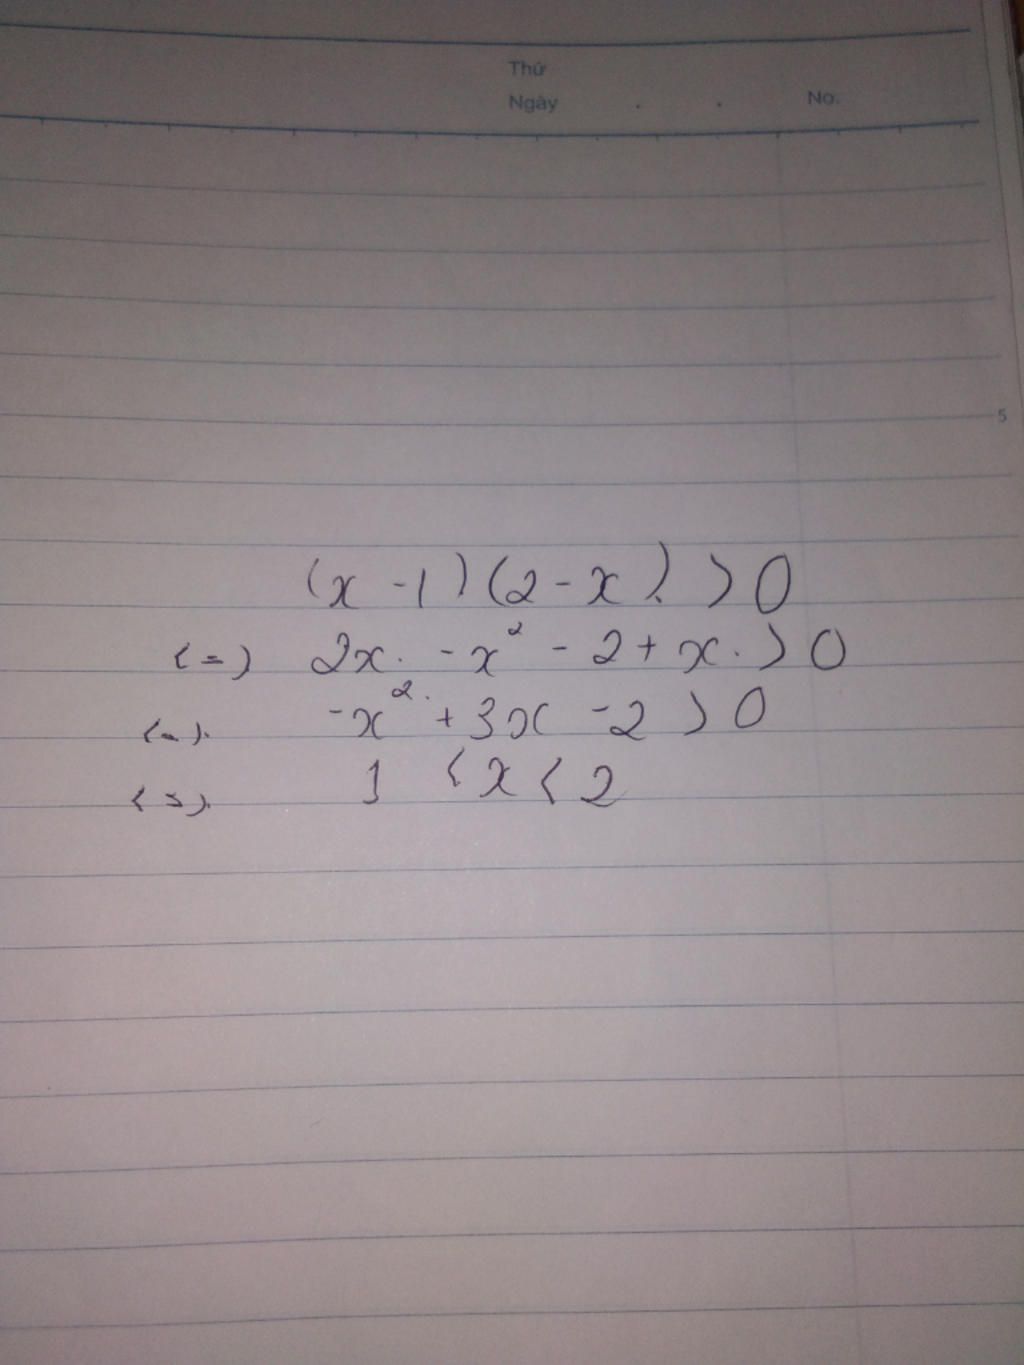 Thứ
Ngày . . No.
5
(x - 1)(2 - x) > 0
<=> 2x - x² - 2 + x > 0
<=> -x² + 3x - 2 > 0
<=> 1 < x < 2